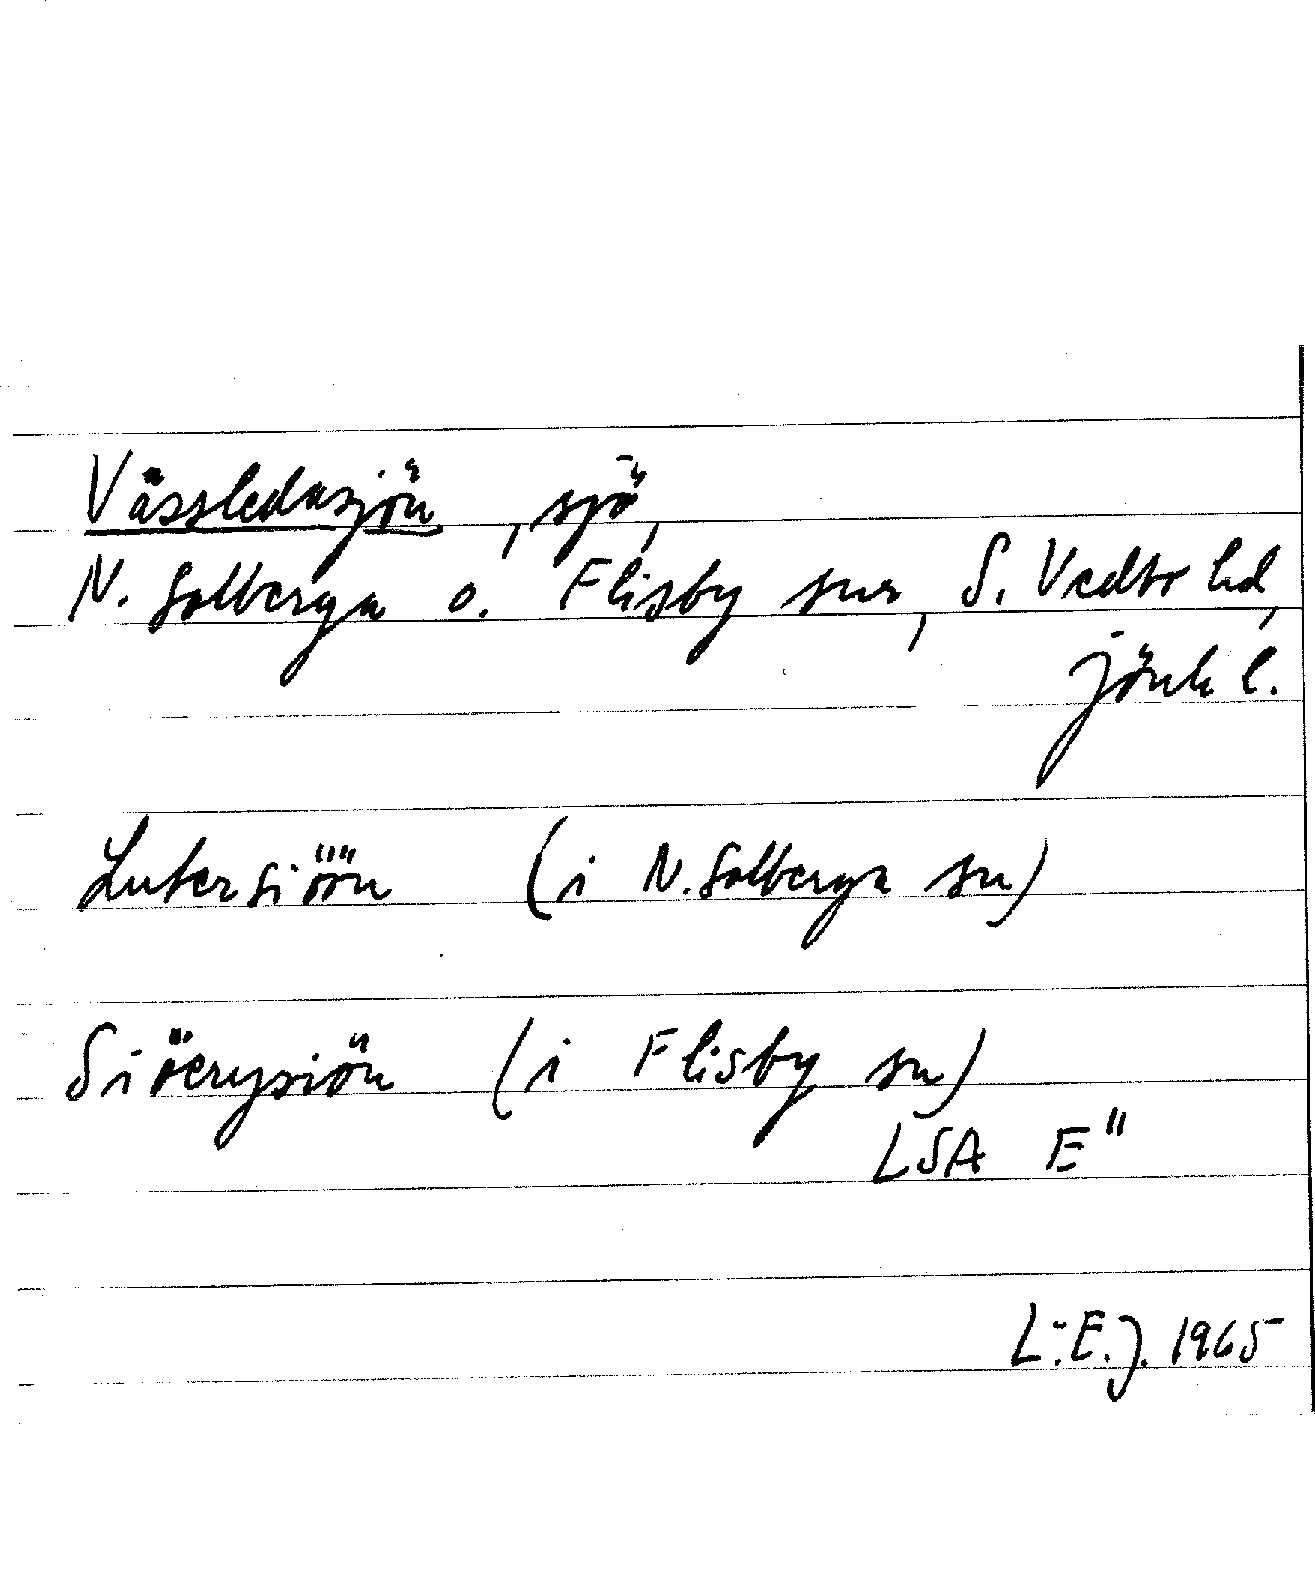 Vässledasjön, sjö,
N. Solberga o. Flisby snr, S. Vedbo hd,
Jönk l.
Lutersiöön (i N. Solberga sn)
Siöerysiön (i Flisby sn)
LSA E"
L.-E. J. 1965